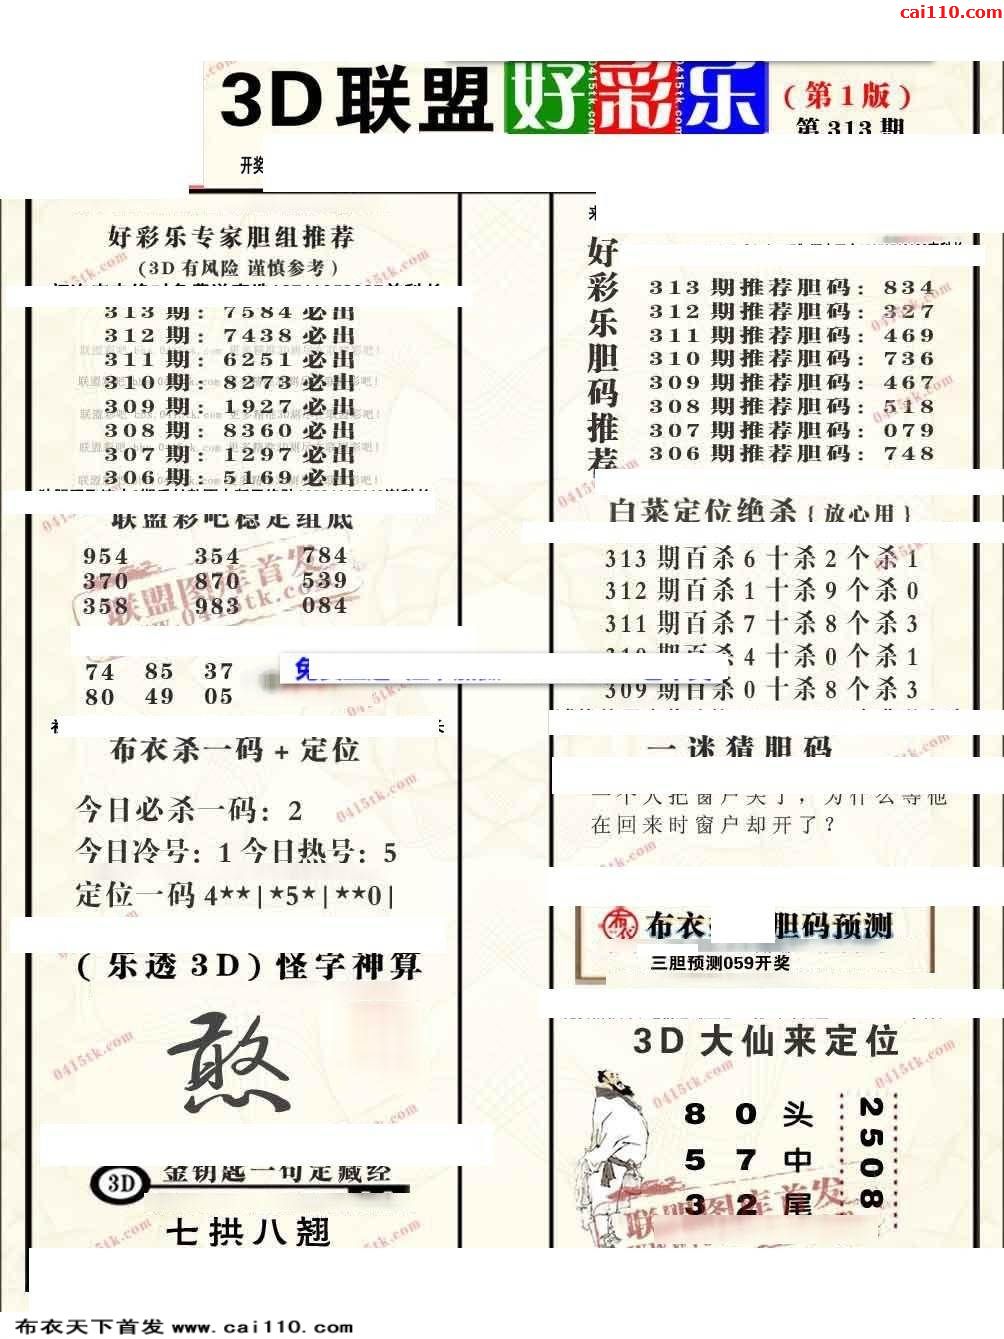 cai110.com
3D联盟 好彩乐 (第1版)
第313期
开奖
好彩乐专家胆组推荐
(3D有风险 谨慎参考)
313期: 7584必出
312期: 7438必出
311期: 6251必出
310期: 8273必出
309期: 1927必出
308期: 8360必出
307期: 1297必出
306期: 5169必出
联盟彩吧稳定组底
954 354 784
370 870 539
358 983 084
联盟图库首发
www.0415tk.com
74 85 37
80 49 05
布衣杀一码+定位
今日必杀一码: 2
今日冷号: 1 今日热号: 5
定位一码 4**|*5*|**0|
(乐透3D)怪字神算
憨
3D 金钥匙一句定藏经
七拱八翘
好彩乐胆码推荐
313期推荐胆码: 834
312期推荐胆码: 327
311期推荐胆码: 469
310期推荐胆码: 736
309期推荐胆码: 467
308期推荐胆码: 518
307期推荐胆码: 079
306期推荐胆码: 748
白菜定位绝杀{放心用}
313期百杀6十杀2个杀1
312期百杀1十杀9个杀0
311期百杀7十杀8个杀3
310期百杀4十杀0个杀1
309期百杀0十杀8个杀3
一迷猜胆码
一个人把窗户关了，为什么等他
在回来时窗户却开了？
布衣 布衣 胆码预测
三胆预测059开奖
3D大仙来定位
8 0 头
5 7 中
3 2 尾
2508
联盟图库首发
0415tk.com
布衣天下首发 www.cai110.com